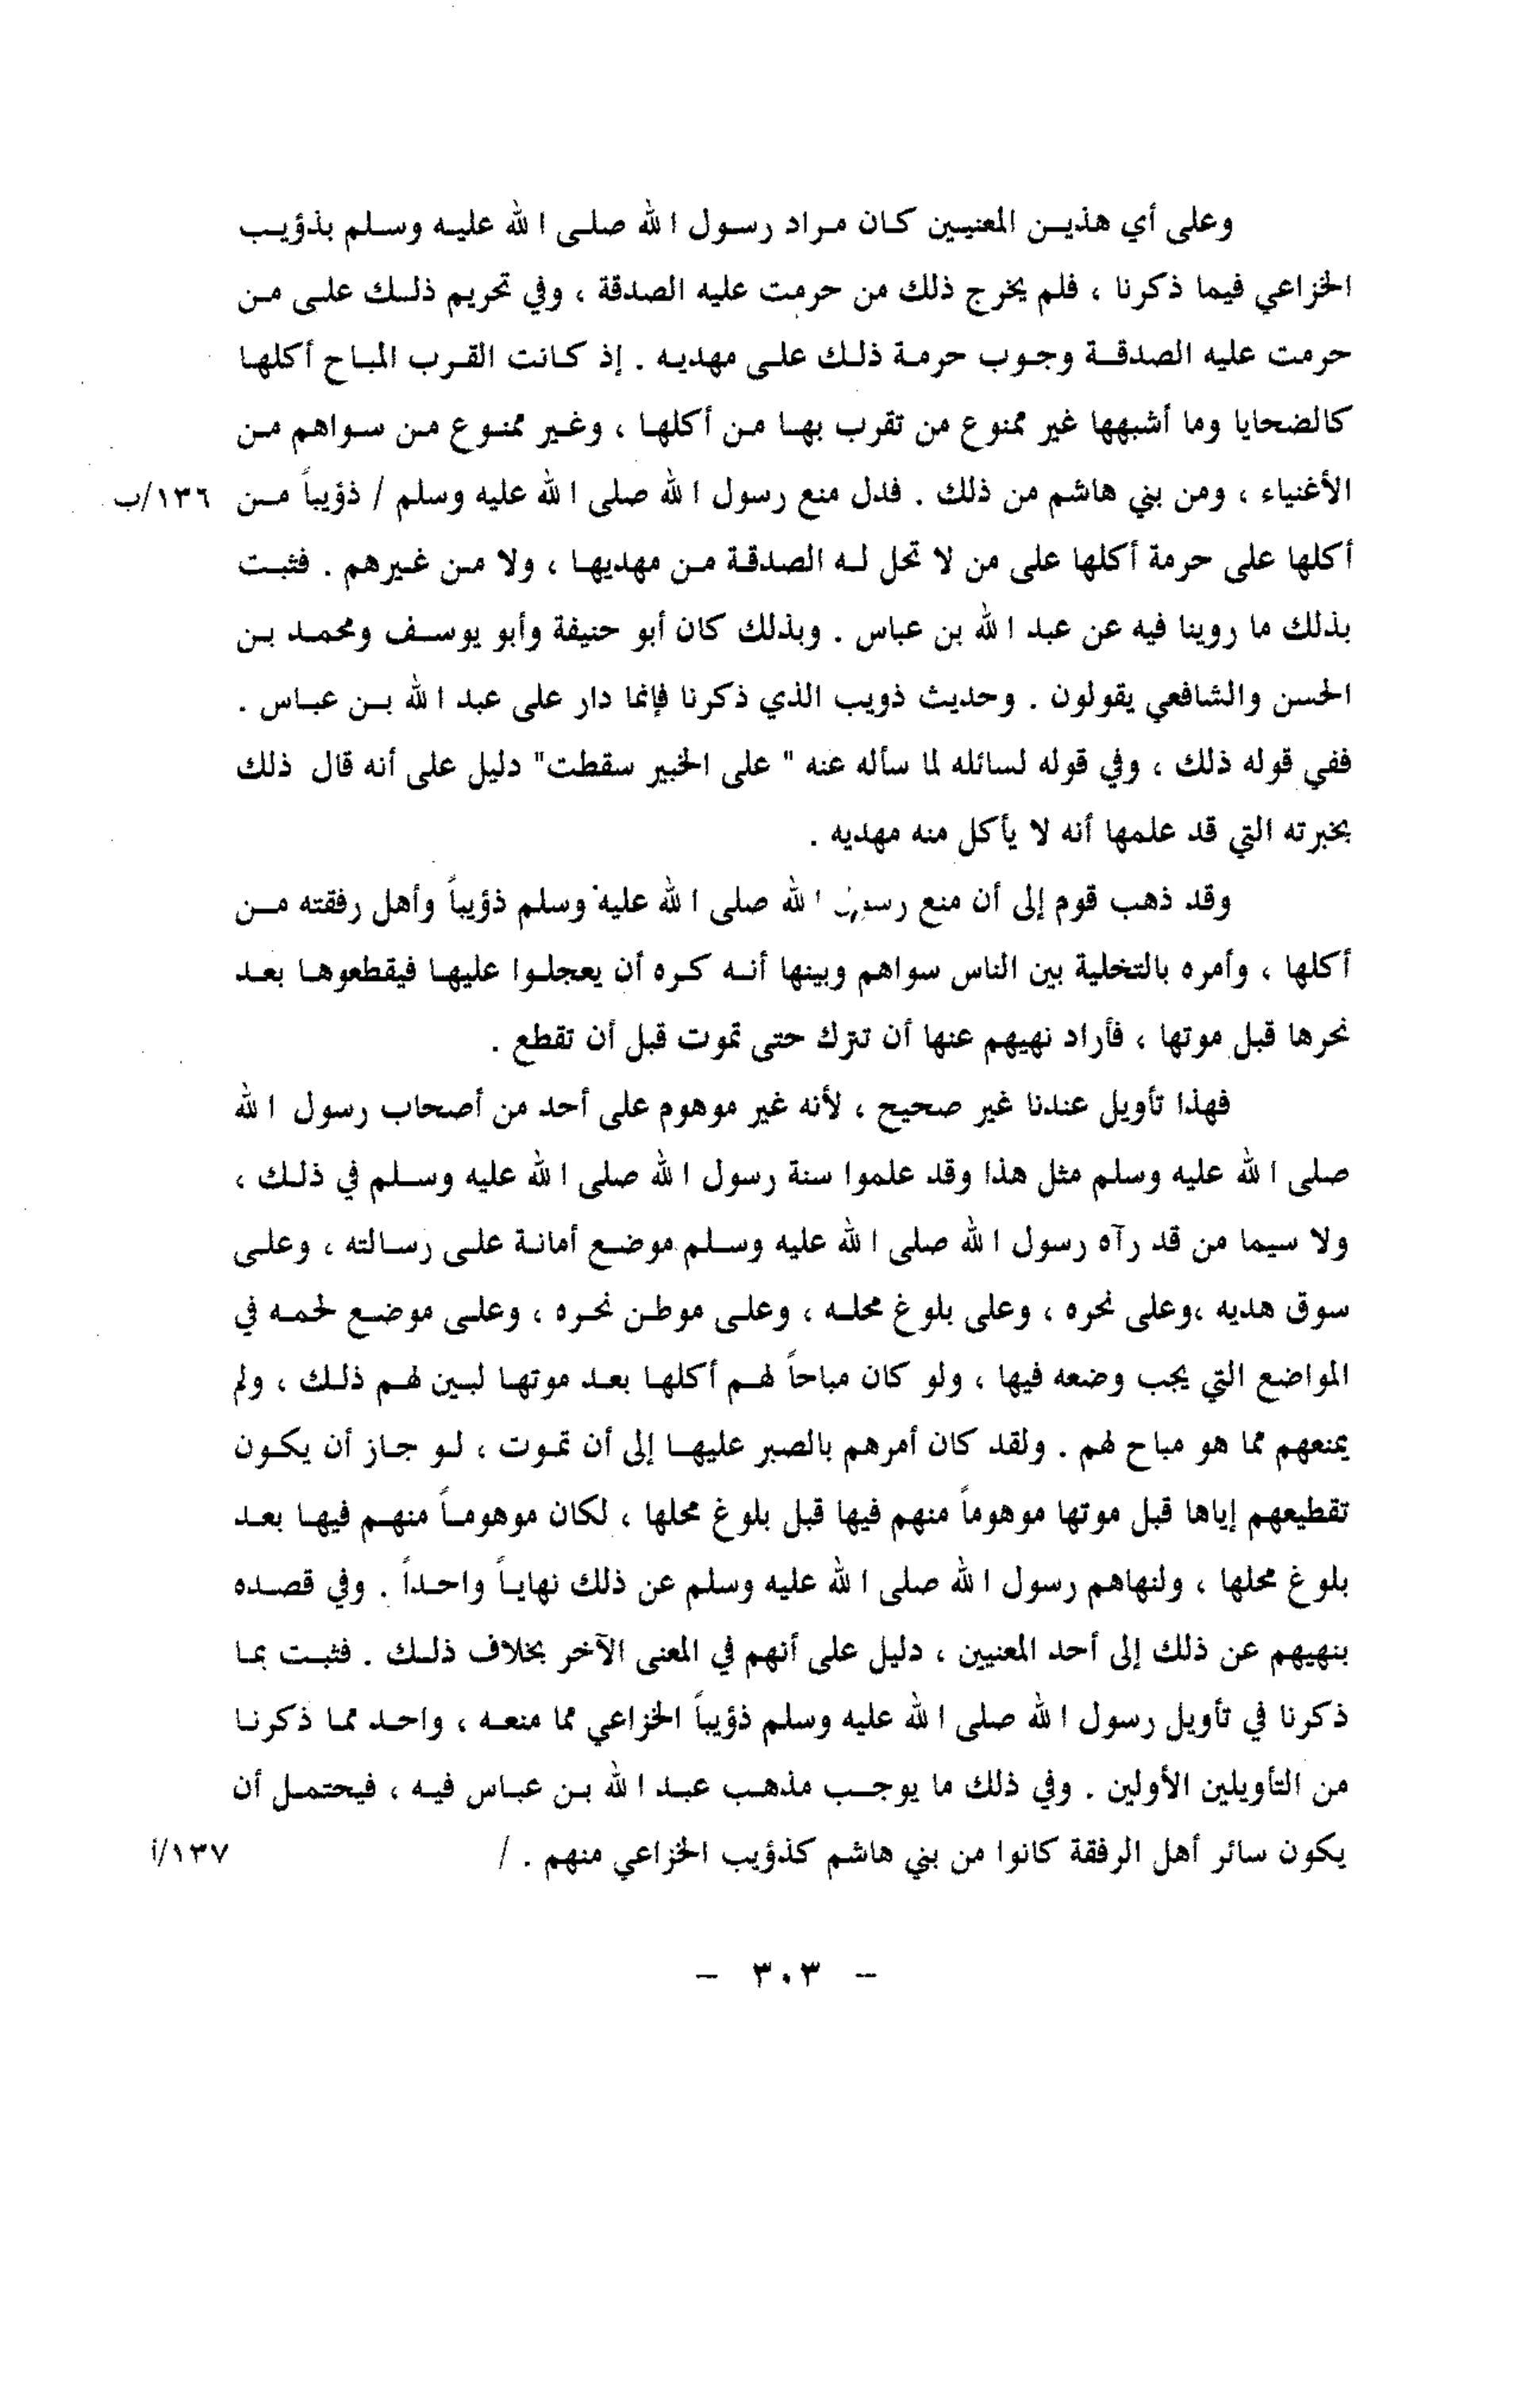 وعلى أي هذين المعنيين كان مراد رسول الله صلى الله عليه وسلم بذؤيب
الخزاعي فيما ذكرنا ، فلم يخرج ذلك من حرمت عليه الصدقة ، وفي تحريم ذلك على من
حرمت عليه الصدقة وجوب حرمة ذلك على مهديه . إذ كانت القرب المباح أكلها
كالضحايا وما أشبهها غير ممنوع من تقرب بها من أكلها ، وغير ممنوع من سواهم من
الأغنياء ، ومن بني هاشم من ذلك . فدل منع رسول الله صلى الله عليه وسلم / ذؤيباً من ١٣٦/ب
أكلها على حرمة أكلها على من لا تحل له الصدقة من مهديها ، ولا من غيرهم . فثبت
بذلك ما روينا فيه عن عبد الله بن عباس . وبذلك كان أبو حنيفة وأبو يوسف ومحمد بن
الحسن والشافعي يقولون . وحديث ذويب الذي ذكرنا فإنما دار على عبد الله بن عباس .
ففي قوله ذلك ، وفي قوله لسائله لما سأله عنه " على الخبير سقطت" دليل على أنه قال ذلك
بخبرته التي قد علمها أنه لا يأكل منه مهديه .
وقد ذهب قوم إلى أن منع رسول الله صلى الله عليه وسلم ذؤيباً وأهل رفقته من
أكلها ، وأمره بالتخلية بين الناس سواهم وبينها أنه كره أن يعجلوا عليها فيقطعوها بعد
نحرها قبل موتها ، فأراد نهيهم عنها أن تترك حتى تموت قبل أن تقطع .
فهذا تأويل عندنا غير صحيح ، لأنه غير موهوم على أحد من أصحاب رسول الله
صلى الله عليه وسلم مثل هذا وقد علموا سنة رسول الله صلى الله عليه وسلم في ذلك ،
ولا سيما من قد رآه رسول الله صلى الله عليه وسلم موضع أمانة على رسالته ، وعلى
سوق هديه ،وعلى نحره ، وعلى بلوغ محله ، وعلى موطن نحره ، وعلى موضع لحمه في
المواضع التي يجب وضعه فيها ، ولو كان مباحاً لهم أكلها بعد موتها لبين لهم ذلك ، ولم
يمنعهم مما هو مباح لهم . ولقد كان أمرهم بالصبر عليها إلى أن تموت ، لو جاز أن يكون
تقطيعهم إياها قبل موتها موهوماً منهم فيها قبل بلوغ محلها ، لكان موهوماً منهم فيها بعد
بلوغ محلها ، ولنهاهم رسول الله صلى الله عليه وسلم عن ذلك نهاياً واحداً . وفي قصده
بنهيهم عن ذلك إلى أحد المعنيين ، دليل على أنهم في المعنى الآخر بخلاف ذلك . فثبت بما
ذكرنا في تأويل رسول الله صلى الله عليه وسلم ذؤيباً الخزاعي مما منعه ، واحد مما ذكرنا
من التأويلين الأولين . وفي ذلك ما يوجب مذهب عبد الله بن عباس فيه ، فيحتمل أن
يكون سائر أهل الرفقة كانوا من بني هاشم كذؤيب الخزاعي منهم . / ١٣٧/أ
– ٣٠٣ –